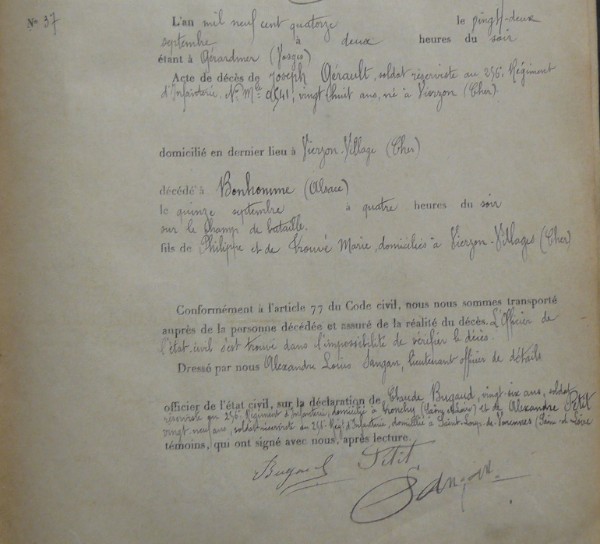 No 37
L'an mil neuf cent quatorze le vingt-deux
septembre à deux heures du soir
étant à Gérardmer (Vosges)
Acte de décès de Joseph Gérault, soldat réserviste au 256e Régiment
d'Infanterie, No Mle 0641, vingt huit ans, né à Vierzon (Cher)
domicilié en dernier lieu à Vierzon-Village (Cher)
décédé à Bonhomme (Alsace)
le quinze septembre à quatre heures du soir
sur le champ de bataille.
fils de Philippe et de Trouvé Marie, domiciliés à Vierzon-Villages (Cher)
Conformément à l'article 77 du Code civil, nous nous sommes transporté
auprès de la personne décédée et assuré de la réalité du décès. L'Officier de
l'état-civil s'est trouvé dans l'impossibilité de vérifier le décès
Dressé par nous Alexandre Louis Sangan, lieutenant officier de détails
officier de l'état civil, sur la déclaration de Claude Bugaud, vingt-six ans, soldat
réserviste au 256e Régiment d'Infanterie, domicilié à (Saône et Loire) et de Alexandre Petit
vingt neuf ans, soldat réserviste au 256e Régt d'Infanterie, domicilié à Saint-Loup de Varennes (Saône et Loire
témoins, qui ont signé avec nous, après lecture.
Bugaud Petit
Sangan